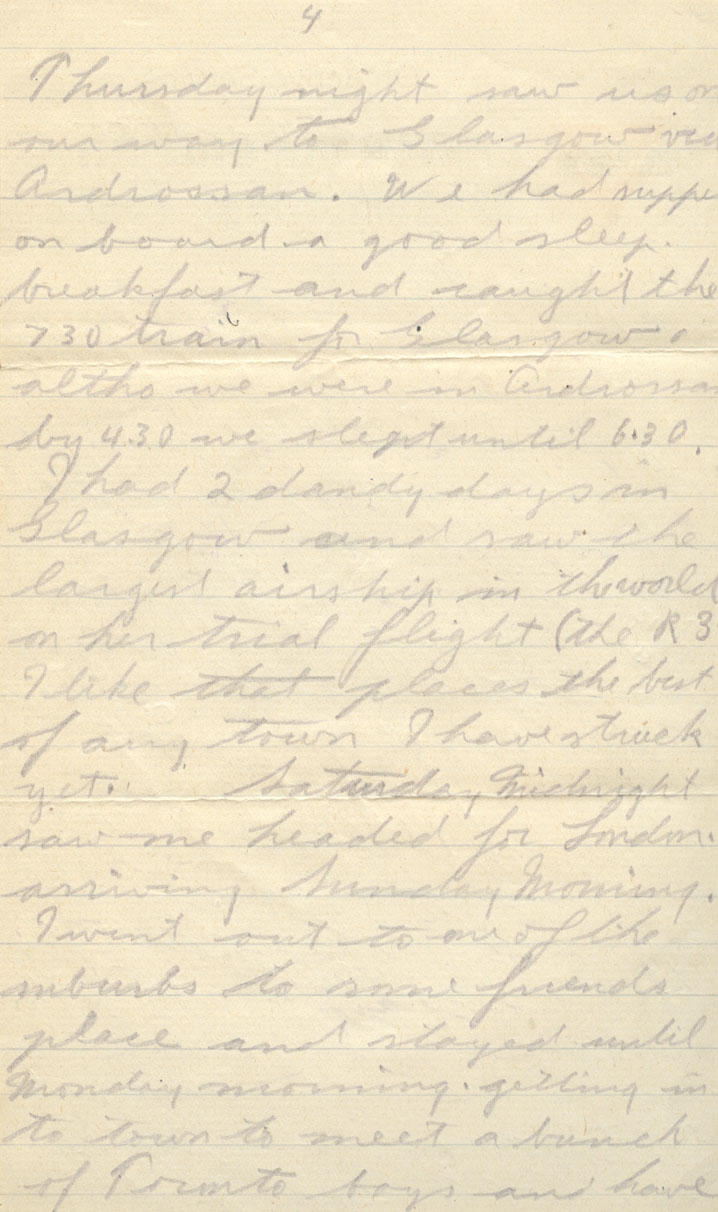 4
Thursday night saw us on
our way to Glasgow via
Ardrossan. We had suppe
on board a good sleep.
breakfast and caught the
730 train for Glasgow
altho we were in Ardrossan
by 4.30 we slept until 6.30.
I had 2 dandy days in
Glasgow and saw the
largest airship in the world
on her trial flight (the R 3
I like that places the best
of any town I have struck
yet. Saturday Midnight
saw me headed for London.
arriving Sunday Morning.
I went out to one of the
suburbs to some friends
place and stayed until
Monday morning. getting in
to town to meet a bunch
of Toronto boys and have